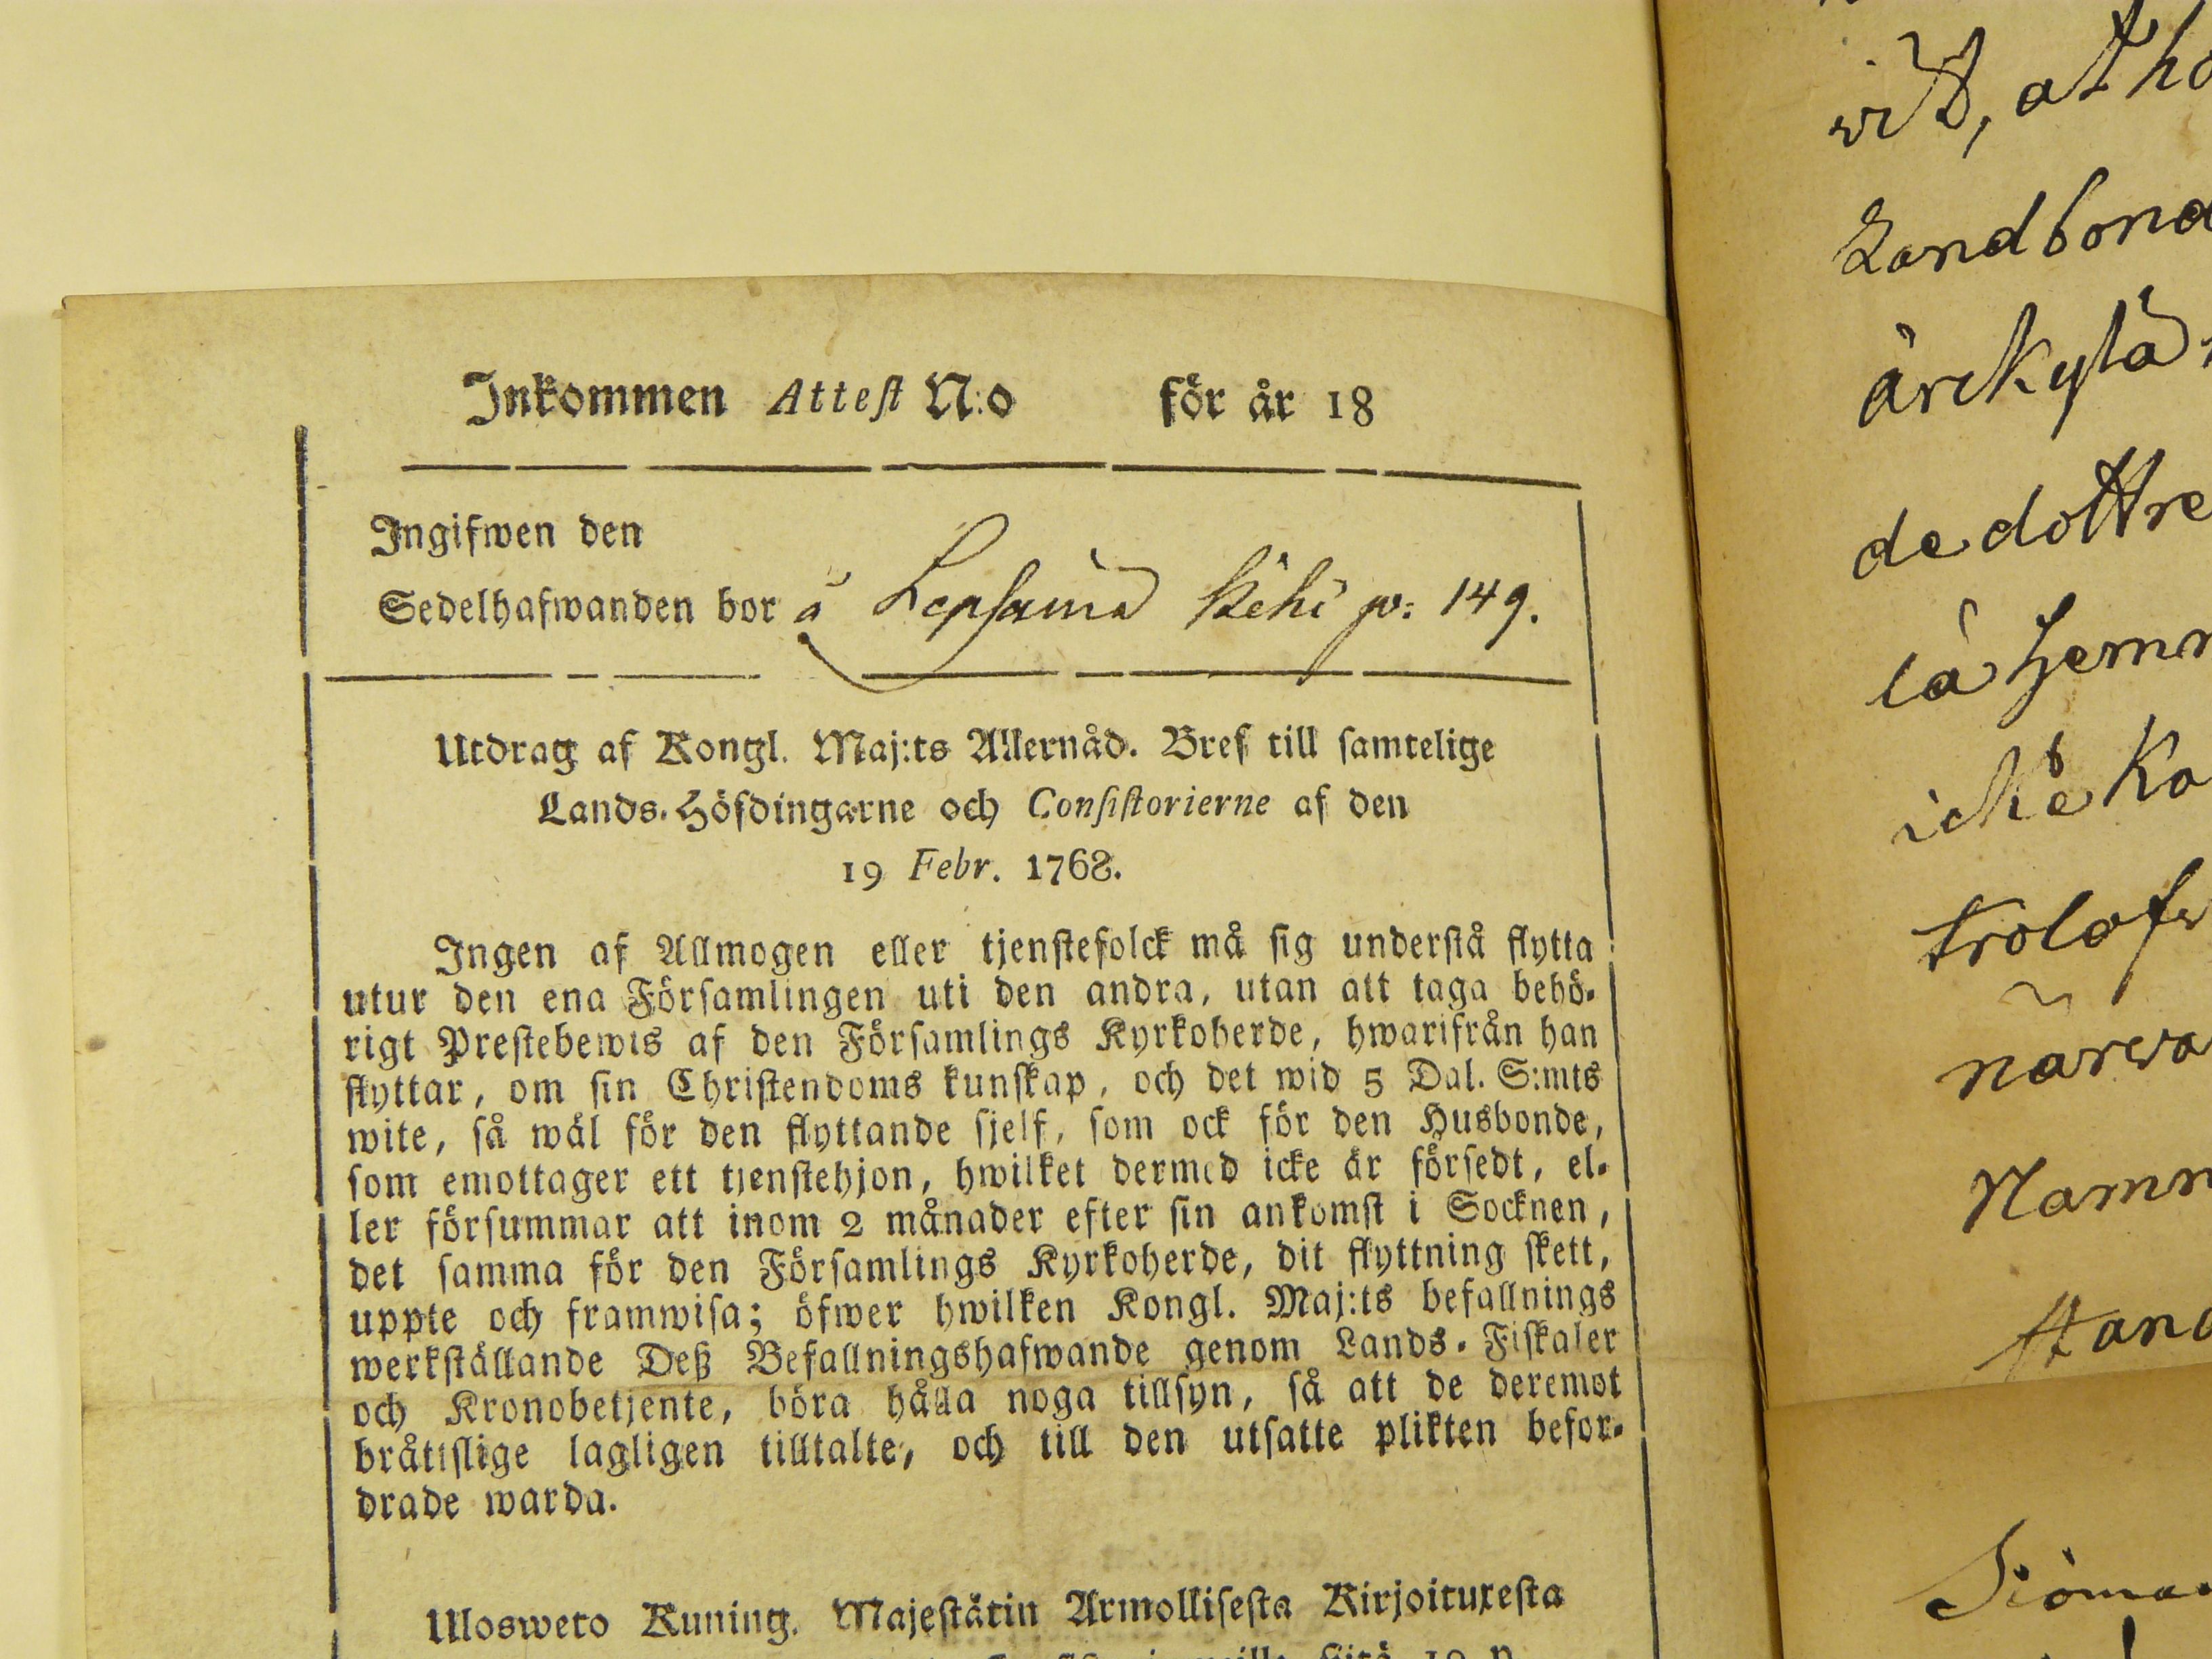 Inkommen Attest N:o för år 18
Ingifwen den
Sedelhafwanden bor å Lepsämä Kihi p: 149.
Utdrag af Kongl. Maj:ts Allernåd. Bref till samtelige
Lands-Höfdingarne och Consistorierne af den
19 Febr. 1768.
Ingen af Allmogen eller tjenstefolck må sig understå flytta
utur den ena Församlingen uti den andra, utan att taga behö-
rigt Prestebewis af den Församlings Kyrkoherde, hwarifrån han
flyttar, om sin Christendoms kunskap, och det wid 5 Dal. S:mts
wite, så wäl för den flyttande sjelf, som ock för den Husbonde,
som emottager ett tjenstehjon, hwilket dermed icke är försedt, el-
ler försummar att inom 2 månader efter sin ankomst i Socknen,
det samma för den Församlings Kyrkoherde, dit flyttning skett,
uppte och framwisa; öfwer hwilken Kongl. Maj:ts befallnings
werkställande Deß Befallningshafwande genom Lands-Fiskaler
och Kronobetjente, böra hålla noga tillsyn, så att de deremot
bråtislige lagligen tilltalte, och till den utsatte plikten befor-
drade warda.
Ulosweto Kuning. Majestätin Armollisesta Kirjoituxesta
19 p
Landbond
ärckylä
de dottre
lä Hemm
icke Ko
trolofw
närwa
Namn